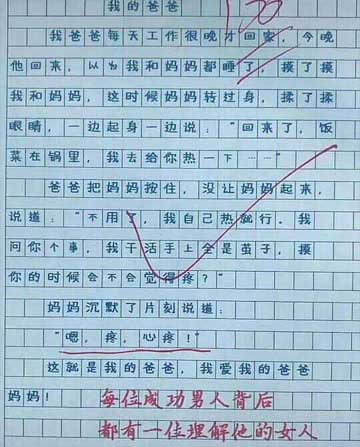 我的爸爸
100
我爸爸每天工作很晚才回家，今晚
他回来，以为我和妈妈都睡了，摸了摸
我和妈妈，这时候妈妈转过身，揉了揉
眼睛，一边起身一边说：“回来了，饭
菜在锅里，我去给你热一下……”
爸爸把妈妈按住，没让妈妈起来，
说道：“不用了，我自己热就行。我
问你个事，我干活手上全是茧子，摸
你的时候会不会觉得疼？”
妈妈沉默了片刻说道：
“嗯，疼，心疼！”
这就是我的爸爸，我爱我的爸爸
妈妈！
每位成功男人背后
都有一位理解他的女人